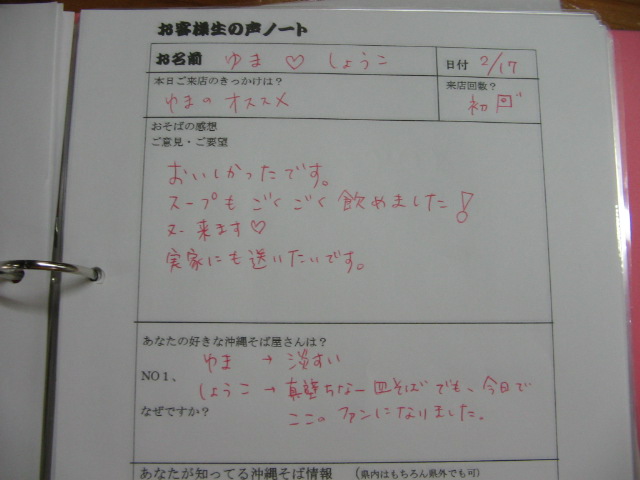 お客様生の声ノート
お名前 ゆま ♡ しょうこ 日付 2/17
本日ご来店のきっかけは？ 来店回数？
ゆまの オススメ 初回
おそばの感想
ご意見・ご要望
おいしかったです。
スープも ごくごく 飲めました！
又 来ます♡
実家にも 送いたいです。
あなたの好きな沖縄そば屋さんは？
ゆま → 淡すい
NO1、
しょうこ → 真壁ちなー 皿そば でも、今日で
なぜですか？ ここの ファンになりました。
あなたが知ってる沖縄そば情報 （県内はもちろん県外でも可）